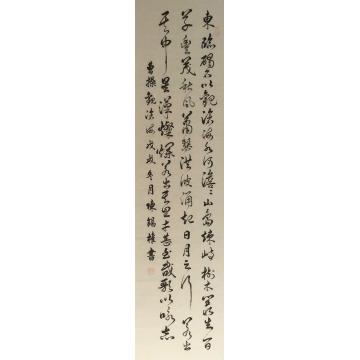 東臨碣石以觀滄海水何澹々山島竦峙樹木叢生百
草豐茂秋風蕭瑟洪波涌起日月之行若出
其中星漢燦爛若出其里幸甚至哉歌以咏志
曹操觀滄海戊戌冬月陳錫書